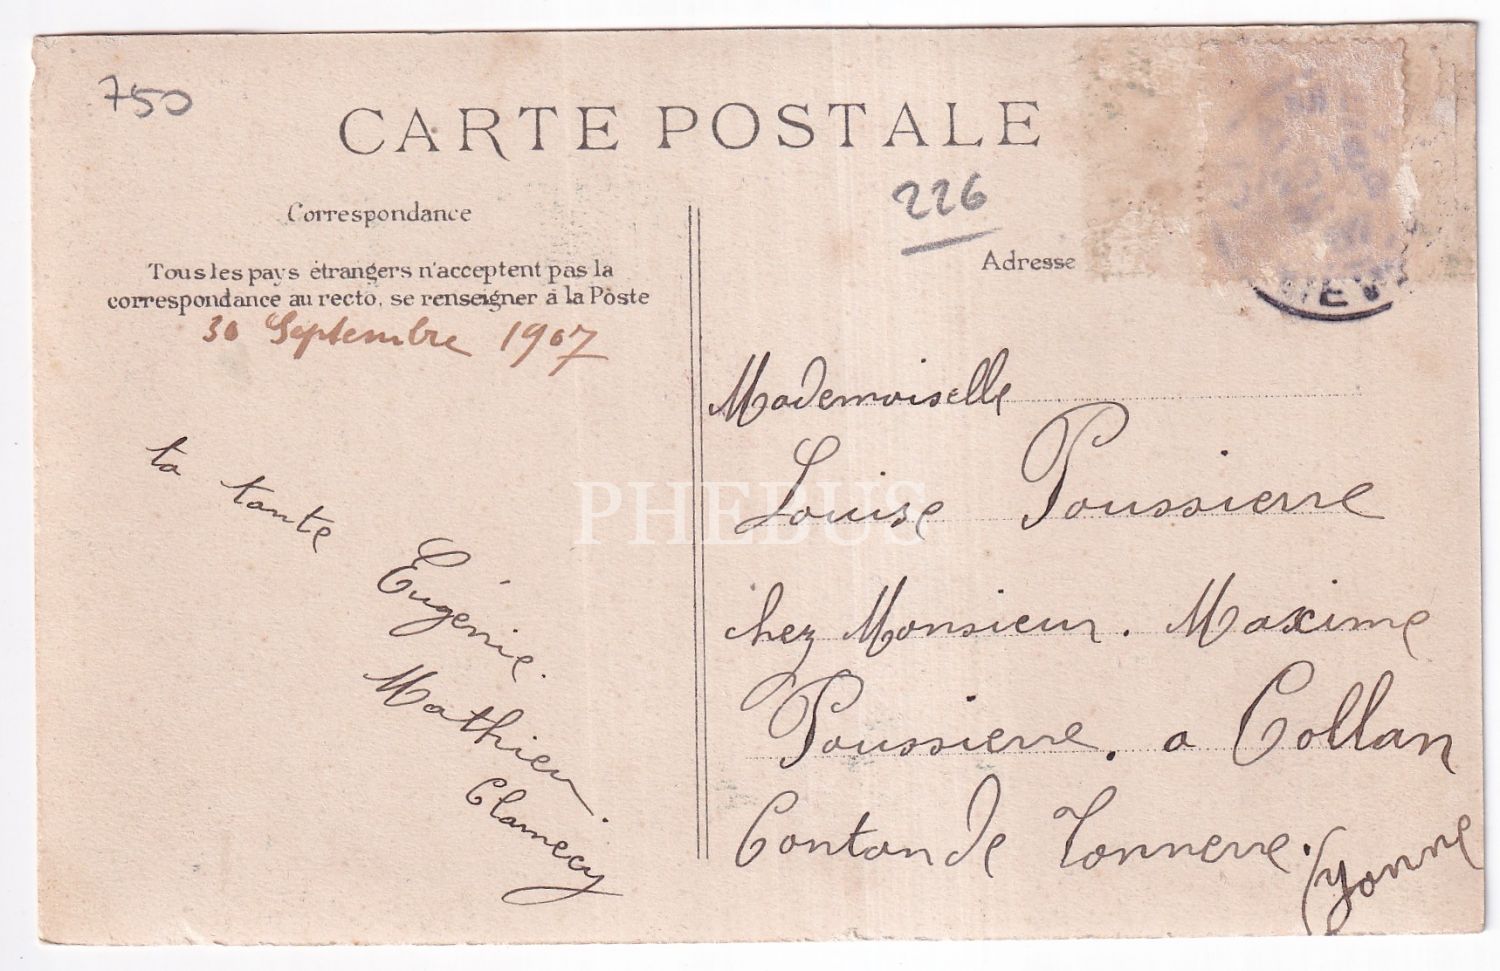 750
CARTE POSTALE
226
Correspondance
Adresse
Tous les pays étrangers n'acceptent pas la
correspondance au recto, se renseigner à la Poste
30 Septembre 1907
ta tante
Eugénie
Mathieu
Clamecy
Mademoiselle
Louise Poussierre
chez Monsieur. Maxime
Poussierre. a Collan
Canton de Tonnerre.
(Yonne
PHEBUS